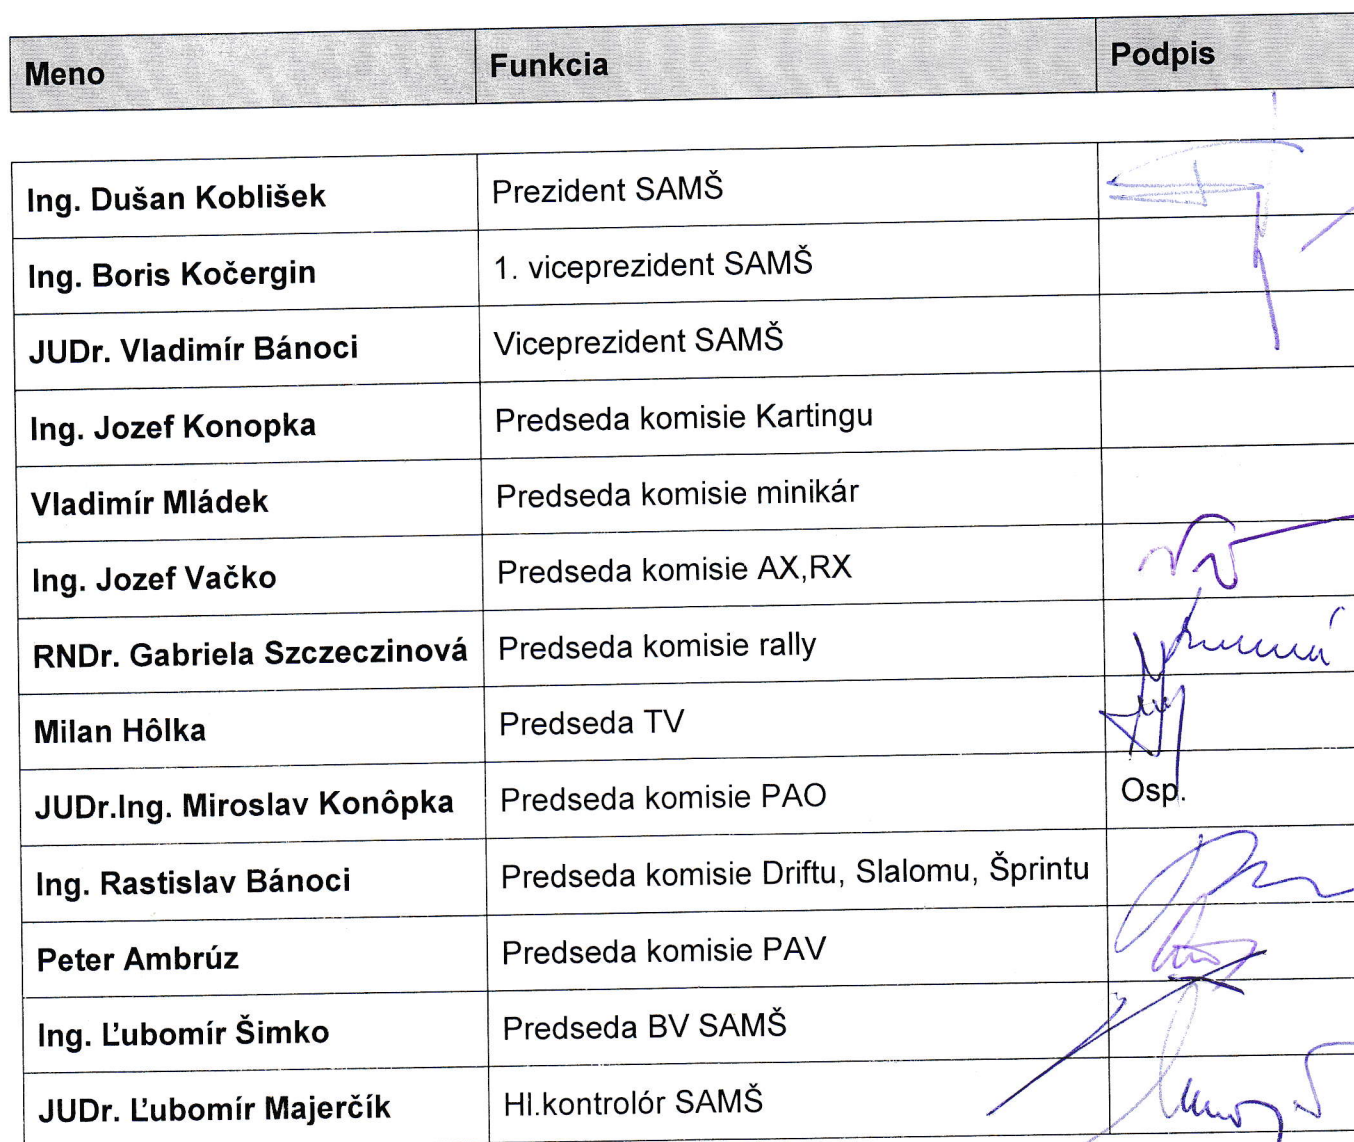 Meno Funkcia Podpis
Ing. Dušan Koblišek Prezident SAMŠ
Ing. Boris Kočergin 1. viceprezident SAMŠ
JUDr. Vladimír Bánoci Viceprezident SAMŠ
Ing. Jozef Konopka Predseda komisie Kartingu
Vladimír Mládek Predseda komisie minikár
Ing. Jozef Vačko Predseda komisie AX,RX
RNDr. Gabriela Szczeczinová Predseda komisie rally
Milan Hôlka Predseda TV
JUDr.Ing. Miroslav Konôpka Predseda komisie PAO Osp.
Ing. Rastislav Bánoci Predseda komisie Driftu, Slalomu, Šprintu
Peter Ambrúz Predseda komisie PAV
Ing. Ľubomír Šimko Predseda BV SAMŠ
JUDr. Ľubomír Majerčík Hl.kontrolór SAMŠ